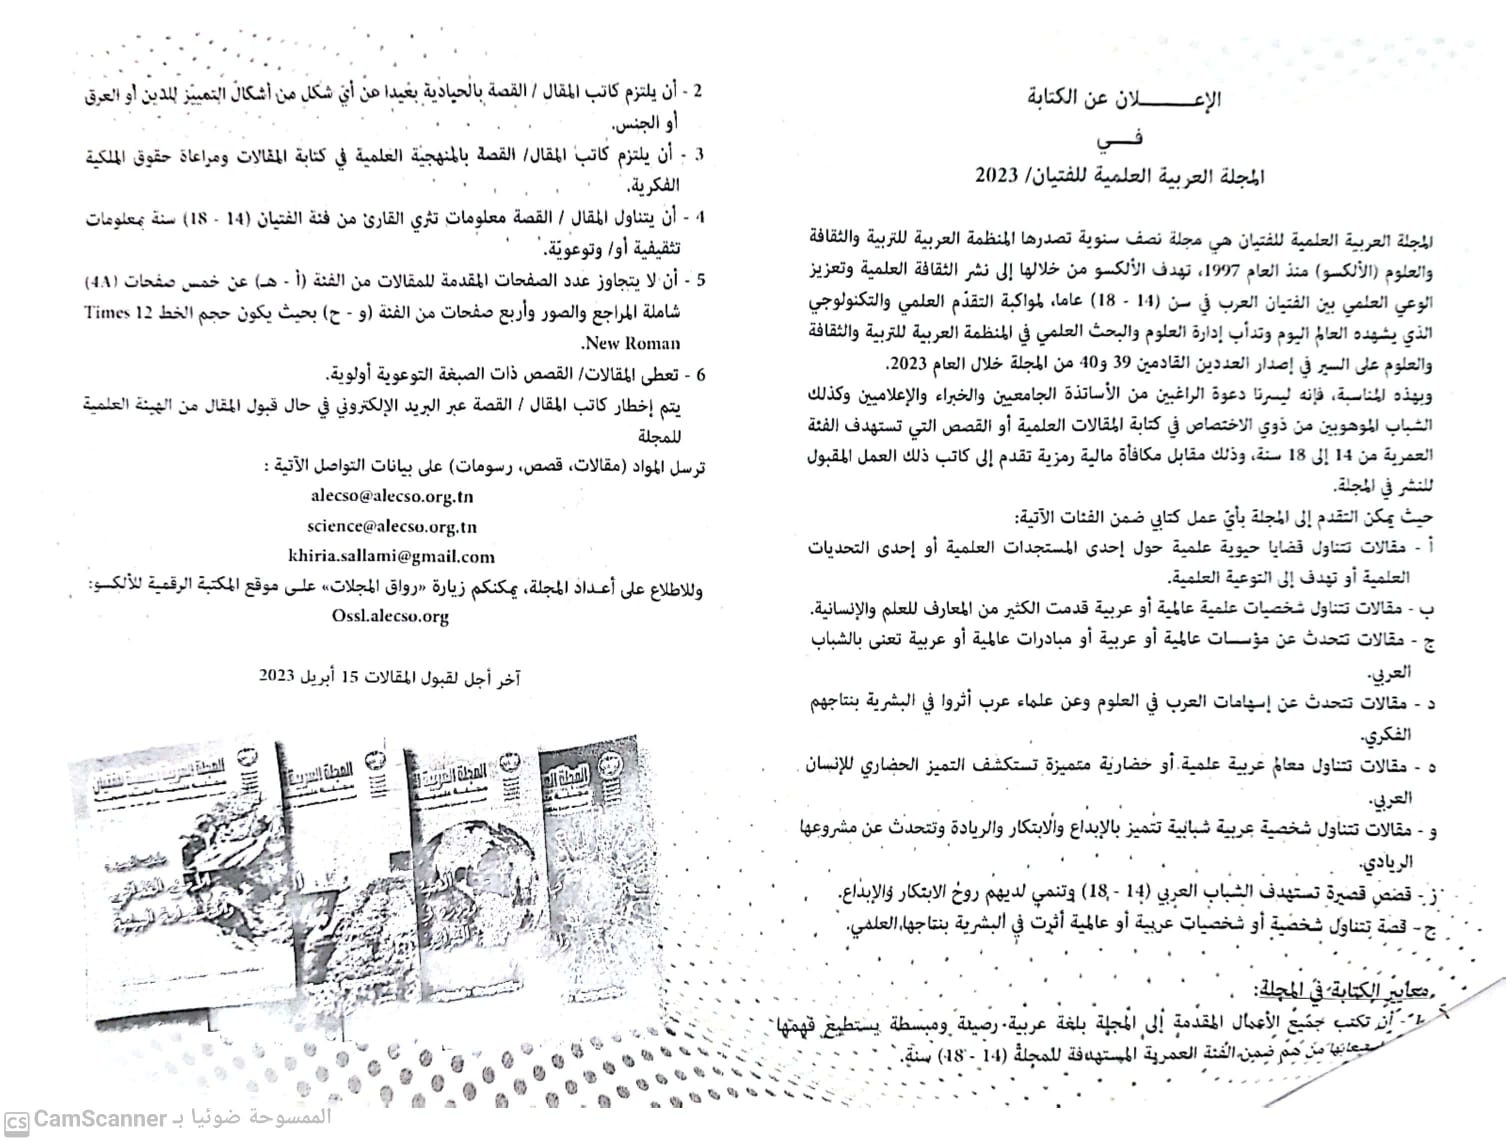 الإعـــــــلان عن الكتابة
فـــي
المجلة العربية العلمية للفتيان/ 2023
المجلة العربية العلمية للفتيان هي مجلة نصف سنوية تصدرها المنظمة العربية للتربية والثقافة
والعلوم (الألكسو) منذ العام 1997، تهدف الألكسو من خلالها إلى نشر الثقافة العلمية وتعزيز
الوعي العلمي بين الفتيان العرب في سن (14 - 18) عاما، لمواكبة التقدّم العلمي والتكنولوجي
الذي يشهده العالم اليوم وتدأب إدارة العلوم والبحث العلمي في المنظمة العربية للتربية والثقافة
والعلوم على السير في إصدار العددين القادمين 39 و40 من المجلة خلال العام 2023.
وبهذه المناسبة، فإنه ليسرنا دعوة الراغبين من الأساتذة الجامعيين والخبراء والإعلاميين وكذلك
الشباب الموهوبين من ذوي الاختصاص في كتابة المقالات العلمية أو القصص التي تستهدف الفئة
العمرية من 14 إلى 18 سنة، وذلك مقابل مكافأة مالية رمزية تقدم إلى كاتب ذلك العمل المقبول
للنشر في المجلة.
حيث يمكن التقدم إلى المجلة بأيّ عمل كتابي ضمن الفئات الآتية:
أ - مقالات تتناول قضايا حيوية علمية حول إحدى المستجدات العلمية أو إحدى التحديات
العلمية أو تهدف إلى التوعية العلمية.
ب - مقالات تتناول شخصيات علمية عالمية أو عربية قدمت الكثير من المعارف للعلم والإنسانية.
ج - مقالات تتحدث عن مؤسسات عالمية أو عربية أو مبادرات عالمية أو عربية تعنى بالشباب
العربي.
د - مقالات تتحدث عن إسهامات العرب في العلوم وعن علماء عرب أثروا في البشرية بنتاجهم
الفكري.
ه - مقالات تتناول معالم عربية علمية أو حضارية متميزة تستكشف التميز الحضاري للإنسان
العربي.
و - مقالات تتناول شخصية عربية شبابية تتميز بالإبداع والابتكار والريادة وتتحدث عن مشروعها
الريادي.
ز - قصص قصيرة تستهدف الشباب العربي (14 - 18) وتنمي لديهم روح الابتكار والإبداع.
ح - قصة تتناول شخصية أو شخصيات عربية أو عالمية أثرت في البشرية بنتاجها العلمي.
معايير الكتابة في المجلة:
1 - أن تكتب جميع الأعمال المقدمة إلى المجلة بلغة عربية رصينة ومبسطة يستطيع فهمها
من هم ضمن الفئة العمرية المستهدفة للمجلة (14 - 18) سنة.
2 - أن يلتزم كاتب المقال / القصة بالحيادية بعيدا عن أيّ شكل من أشكال التمييز للدين أو العرق
أو الجنس.
3 - أن يلتزم كاتب المقال/ القصة بالمنهجية العلمية في كتابة المقالات ومراعاة حقوق الملكية
الفكرية.
4 - أن يتناول المقال / القصة معلومات تثري القارئ من فئة الفتيان (14 - 18) سنة بمعلومات
تثقيفية أو/ وتوعويّة.
5 - أن لا يتجاوز عدد الصفحات المقدمة للمقالات من الفئة (أ - هـ) عن خمس صفحات (4A)
شاملة المراجع والصور وأربع صفحات من الفئة (و - ح) بحيث يكون حجم الخط 12 Times
New Roman.
6 - تعطى المقالات/ القصص ذات الصبغة التوعوية أولوية.
يتم إخطار كاتب المقال / القصة عبر البريد الإلكتروني في حال قبول المقال من الهيئة العلمية
للمجلة
ترسل المواد (مقالات، قصص، رسومات) على بيانات التواصل الآتية :
alecso@alecso.org.tn
science@alecso.org.tn
khiria.sallami@gmail.com
وللاطلاع على أعداد المجلة، يمكنكم زيارة «رواق المجلات» على موقع المكتبة الرقمية للألكسو:
Ossl.alecso.org
آخر أجل لقبول المقالات 15 أبريل 2023
المجلة العربية
المجلة العربية
CS CamScanner الممسوحة ضوئيا بـ